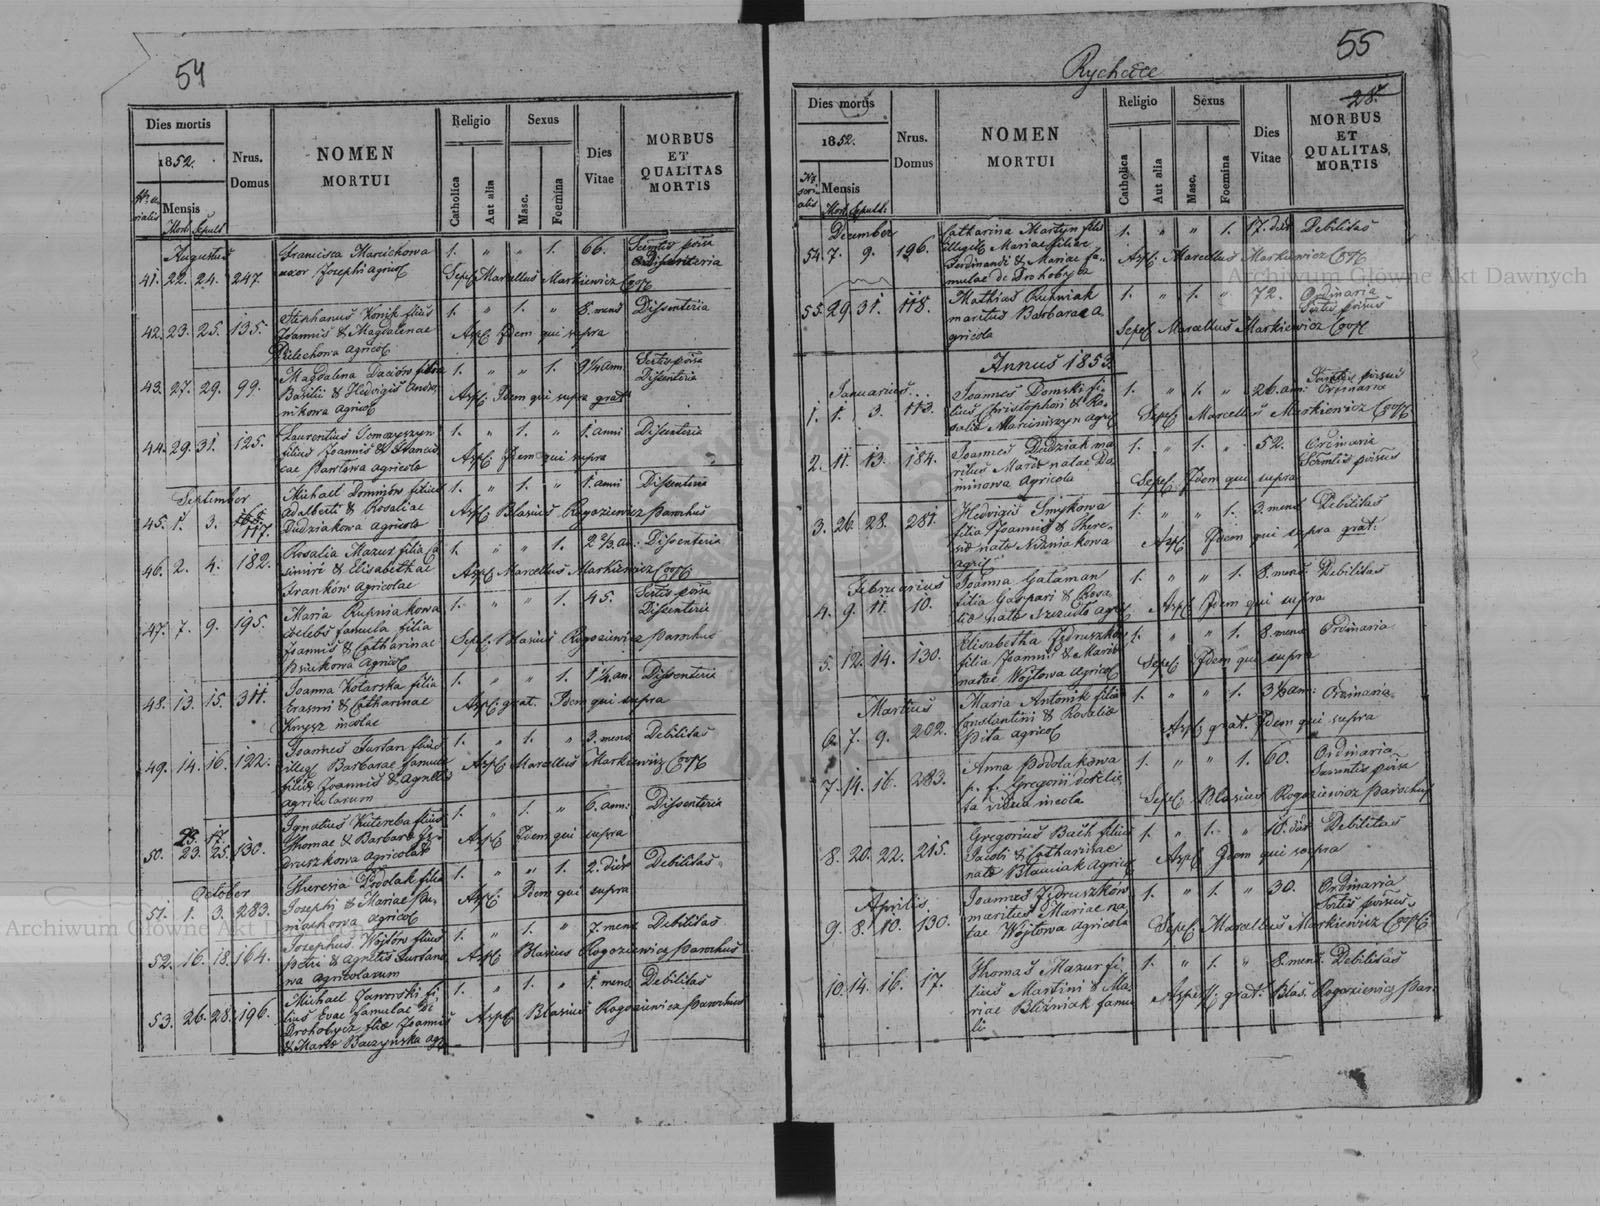 54
Dies mortis
1852.
Nrus.
Domus
NOMEN
MORTUI
Religio
Sexus
Catholica
Aut alia
Masc.
Foemina
Dies
Vitae
MORBUS
ET
QUALITAS
MORTIS
Mensis
Mort. Sepult.
Augustus
41. 22. 24. 247.
Francisca Marichowa
uxor Josephi agric
1. " " 1. 66.
Disenteria
Sepel Marcellus Markiewicz Coop
42. 23. 25. 135.
Stephanus Konik filius
Joannis & Magdalenae
agric
1. " 1. " 8. mens Dissenteria
Aspl Idem qui supra
43. 27. 29. 99.
Magdalena Daciów filia
Basilii & Hedvigis
agric
1. " " 1.
Dissenteria
Aspl Idem qui supra grat
44. 29. 31. 125.
Laurentius
filius Joannis & Francis
cae Pawłowa agricola
1. " 1. " 1. anni Dissenteria
Aspl Idem qui supra
September
45. 1. 3. 117.
Michael Dominów filius
Adalberti & Rosaliae
Dudziakowa agricola
1. " 1. " 1. anni Dissenteria
Aspl Blasius Rogoziewicz Parochus
46. 2. 4. 182.
Rosalia Mazur filia Ca
simiri & Elisabethae
Franków Agricolae
1. " " 1. 2 2/3. an: Dissenteria
Aspl Marcellus Markiewicz Coop
47. 7. 9. 195.
Maria Rupniakowa
coelebs famula filia
Joannis & Catharinae
agric
1. " " 1. 45.
Dissenteria
Sepel Blasius Rogoziewicz Parochus
48. 13. 15. 311.
Joanna Kolarska filia
Erasmi & Catharinae
Knysz incolae
1. " " 1. 1 1/4. an. Dissenteria
Aspl grat. Idem qui supra
49. 14. 16. 122.
Joannes Surtan filius
illeg Barbarae famulae
filiae Joannis & Agnetis
agricolarum
1. " 1. " 3. mens Debilitas
Aspl Marcellus Markiewicz Coop
50. 23. 25. 130.
Ignatius Kutereba filius
Thomae & Barbarae Ję-
druszkowa agricolae
1. " 1. " 6. ann: Dissenteria
Aspl Idem qui supra
October
51. 1. 3. 283.
Theresia Podolak filia
Josephi & Mariae
agric
1. " " 1. 2. dies Debilitas
Aspl Idem qui supra
52. 16. 18. 164.
Josephus Wojtów filius
Petri & Agnetis Surtano
wa agricolarum
1. " 1. " 7. mens Debilitas
Aspl Blasius Rogoziewicz Parochus
53. 26. 28. 196.
Michael Jaworski fi
lius Evae famulae de
Drohobycz filiae Joannis
& Mariae Baczyńska agr
1. " 1. " 1. mens Debilitas
Aspl Blasius Rogoziewicz Parochus
55
Rychcice
28.
Dies mortis
1852.
Nrus.
Domus
NOMEN
MORTUI
Religio
Sexus
Catholica
Aut alia
Masc.
Foemina
Dies
Vitae
MORBUS
ET
QUALITAS
MORTIS
Mensis
Mort. Sepult.
December
54. 7. 9. 196.
Catharina Martyn filia
illegit Mariae filiae
Ferdinandi & Mariae fa-
mulae de Drohobycz
1. " " 1. 17. dies Debilitas
Aspl Marcellus Markiewicz Coop
55. 29. 31. 118.
Mathias Rupniak
maritus Barbarae a
gricola
1. " 1. " 72. Ordinaria
Sepel Marcellus Markiewicz Coop
Annus 1853.
Januarius
1. 1. 3. 113.
Joannes Domski fi
lius Christophori & Ro
saliae Marciniszyn agric
1. " 1. " 26. an:
Ordinaria
Sepel Marcellus Markiewicz Coop
2. 11. 13. 184.
Joannes Dudziak ma
ritus Mariae natae Do
minowa Agricola
1. " 1. " 52. Ordinaria
Sepel Idem qui supra
3. 26. 28. 281.
Hedvigis Smykowa
filia Joannis & There
siae natae Niżniakowa
agric
1. " " 1. 3. mens Debilitas
Aspl Idem qui supra grat.
Februarius
4. 9. 11. 10.
Joanna Gałaman
filia Gaspari & Rosa
liae natae agric
1. " " 1. 8. mens. Debilitas
Aspl Idem qui supra
5. 12. 14. 130.
Elisabetha Jędruszków
filia Joannis & Mariae
natae Wojtowa Agricol
1. " " 1. 8. mens Ordinaria
Sepel Idem qui supra
Martius
6. 7. 9. 202.
Maria Antonik filia
Constantini & Rosaliae
Pita agricol
1. " " 1. 3 1/2 an: Ordinaria
Aspl grat. Idem qui supra
7. 14. 16. 283.
Anna Podolakowa
p. f. Gregorii derelic
ta vidua incola
1. " " 1. 60. Ordinaria
Sepel Blasius Rogoziewicz Parochus
8. 20. 22. 215.
Gregorius Bach filius
Jacobi & Catharinae
natae Bławciak Agricol
1. " 1. " 10. dies Debilitas
Aspl Idem qui supra
Aprilis
9. 8. 10. 130.
Joannes Jędruszków
maritus Mariae na
tae Wojtowa Agricola
1. " 1. " 30. Ordinaria
Sepel Marcellus Markiewicz Coop
10. 14. 16. 17.
Thomas Mazur fi
lius Martini & Ma
riae Bliźniak famu
li
1. " 1. " 8. mens. Debilitas
Aspers. grat. Blas. Rogoziewicz Par
Archiwum Główne Akt Dawnych
Archiwum Główne Akt Dawnych